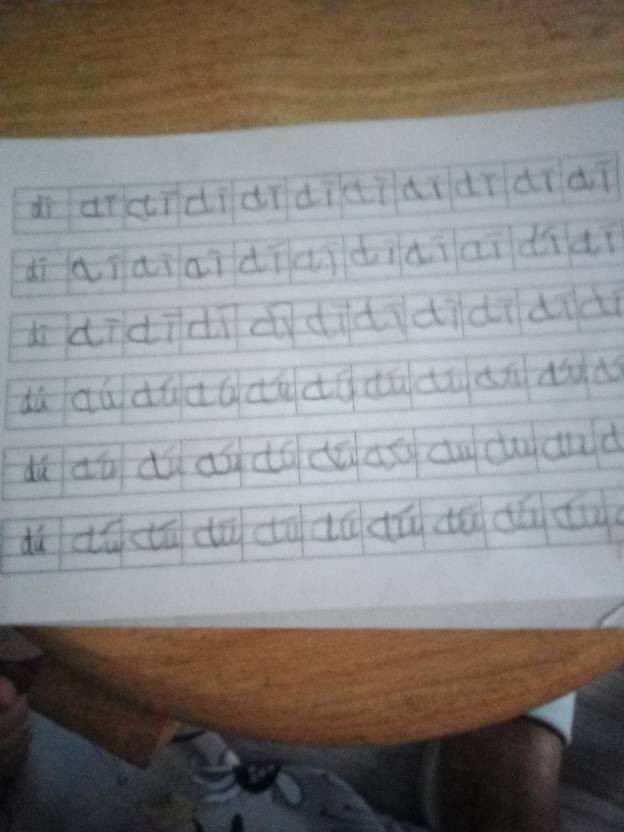 dī dī dī dī dī dī dī dī dī dī dī
dī dī dī dī dī dī dī dī dī dī dī
dī dī dī dī dī dī dī dī dī dī dī
dú dú dú dú dú dú dú dú dú dú
dú dú dú dú dú dú dú du du du d
dú dú dú dú dú dú dú dú dú dú